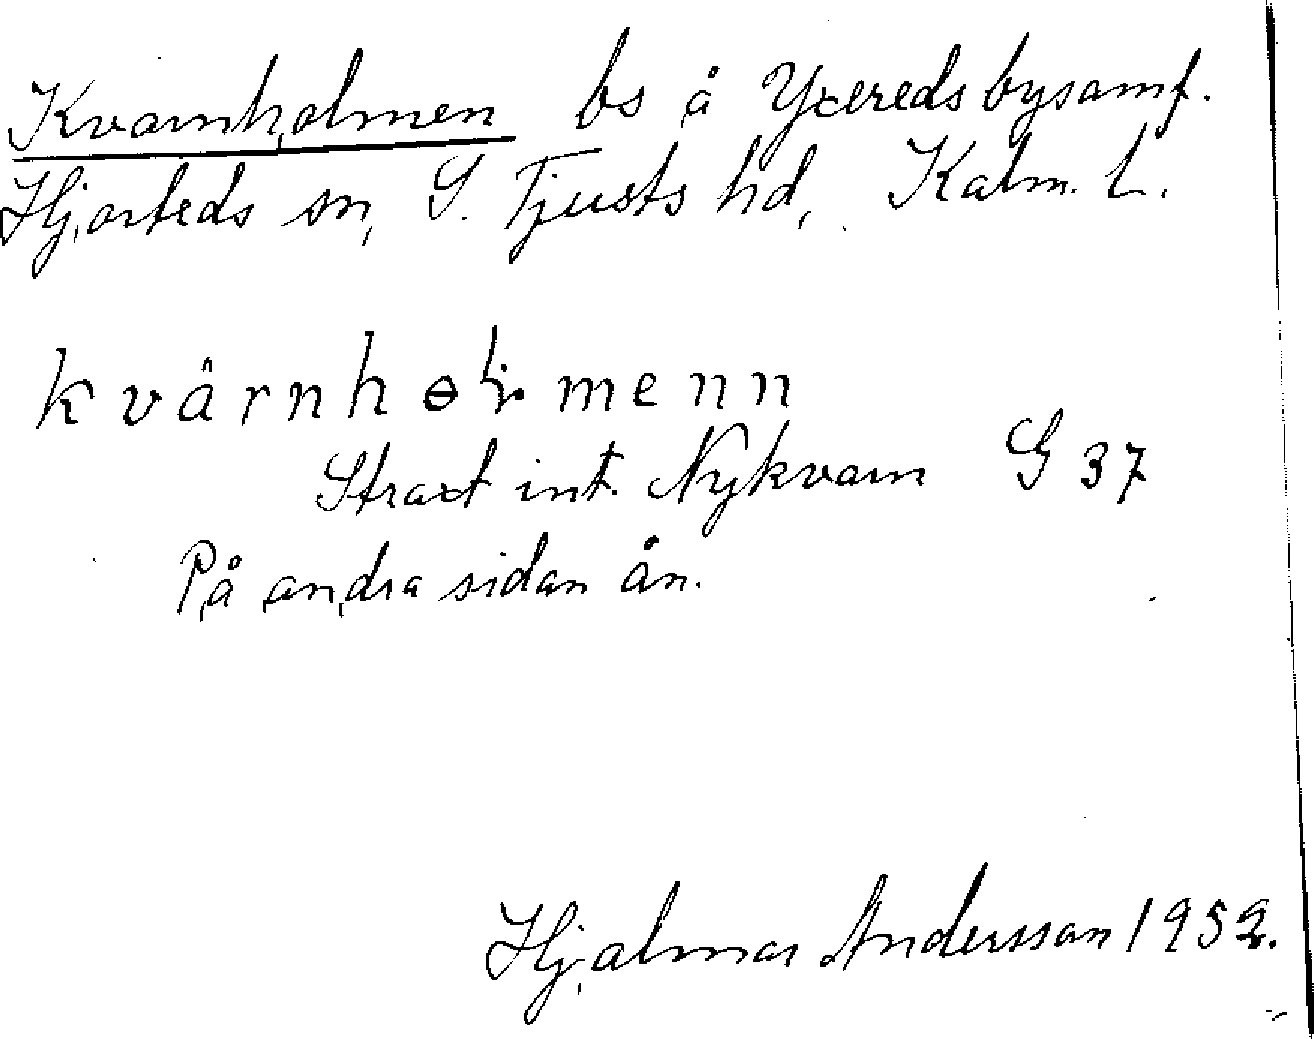 Kvarnholmen bs å Yxereds bysamf.
Hjorteds sn, S. Tjusts hd, Kalm. L.
kvärnhɵłmenn
Straxt int. Nykvarn G 37
På andra sidan ån.
Hjalmar Andersson 1952.